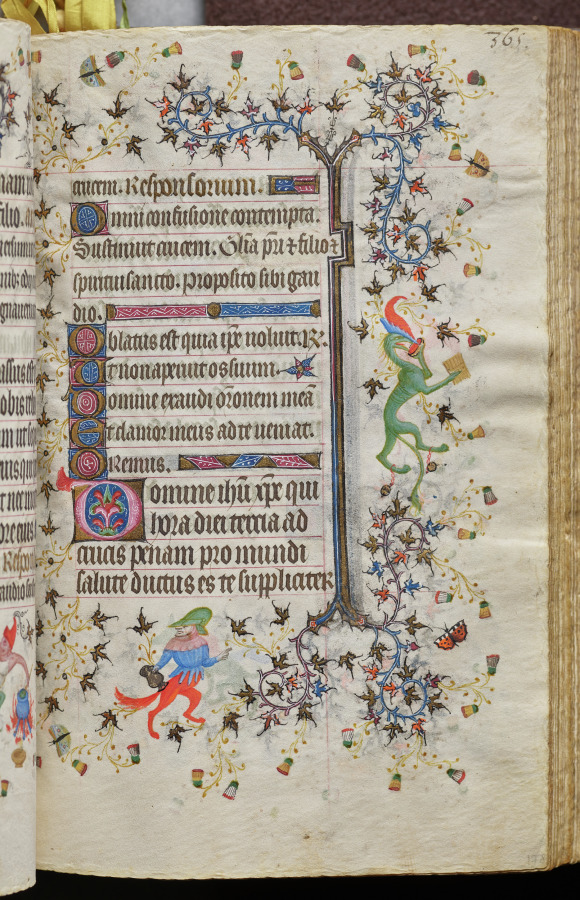 365.
crucem. Responsorium.
Omni confusione contempta.
Sustinuit crucem. Glīa pr̄i ⁊ filio ⁊
spiritui sancto. Proposito sibi gau
dio.
Oblatus est quia ip̄e voluit. R̄.
Et non aperuit os suum.
Domine exaudi or̄onem meā
Et clamor meus ad te veniat.
Oremus.
Domine ih̄u xp̄e qui
hora diei tercia ad
crucis penam pro mundi
salute ductus es te suppliciter